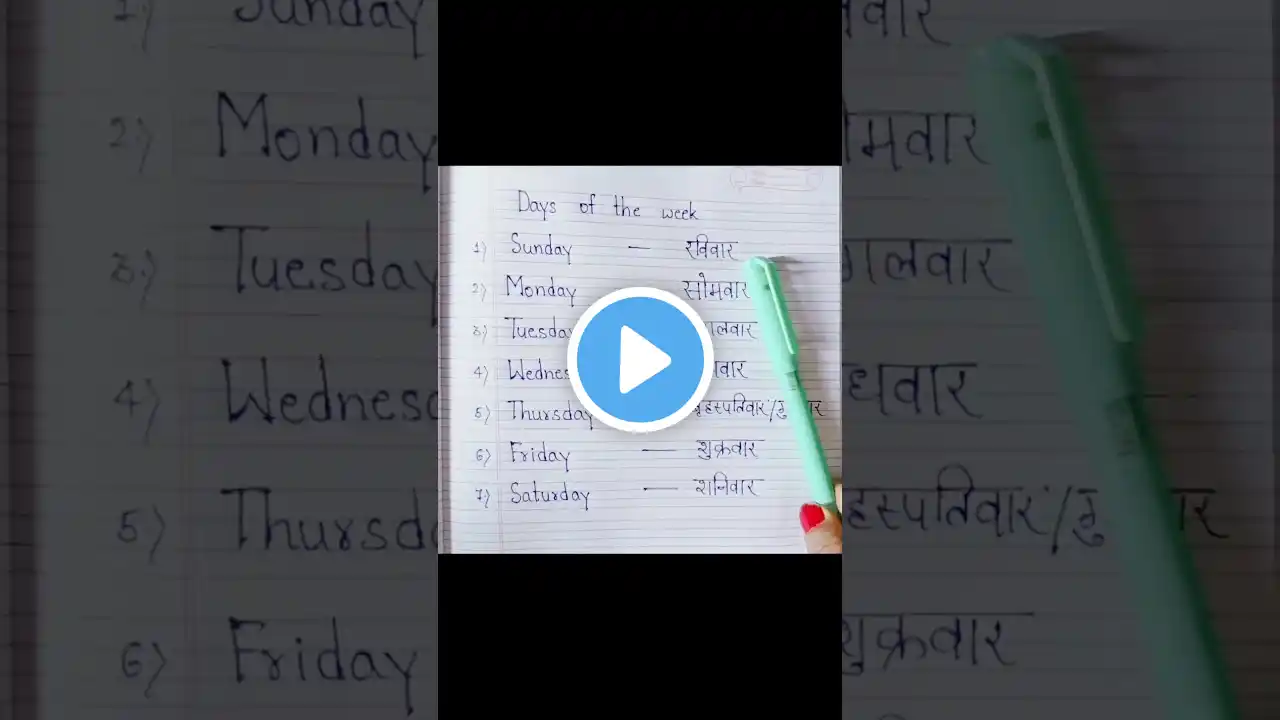 Days of the week
1) Sunday — रविवार
2) Monday सोमवार
3) Tuesday
4)
5) Thursday
6) Friday — शुक्रवार
7) Saturday — शनिवार